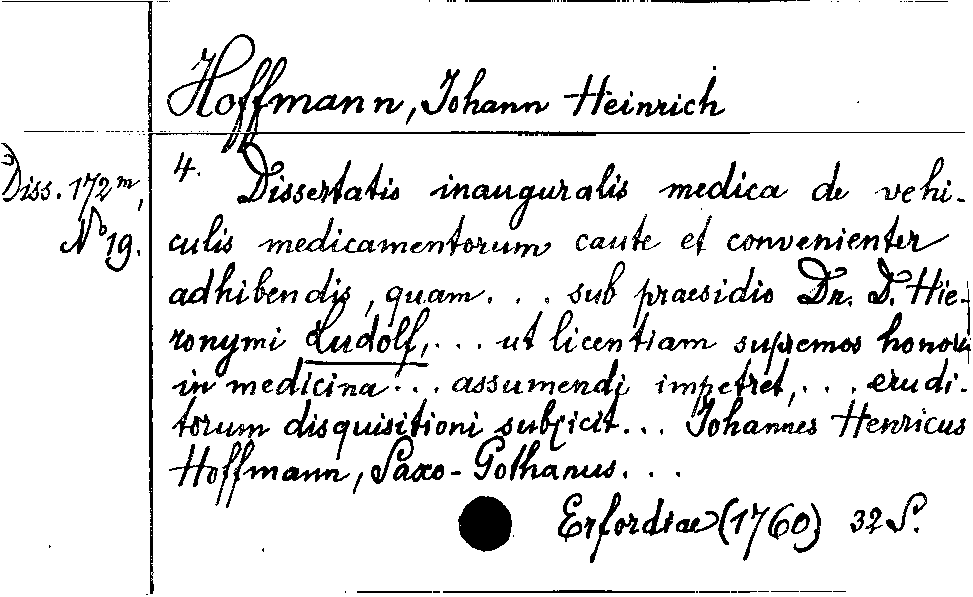 Hoffmann, Johann Heinrich
Diss. 172m,
No 19.
4. Dissertatio inauguralis medica de vehi-
culis medicamentorum caute et convenienter
adhibendis, quam... sub praesidio Dr. D. Hie-
ronymi Ludolf,... ut licentiam supremos honores
in medicina... assumendi impetret,... erudi-
torum disquisitioni subjicit... Johannes Henricus
Hoffmann, Saxo-Gothanus...
Erfordiae (1760) 32 S.